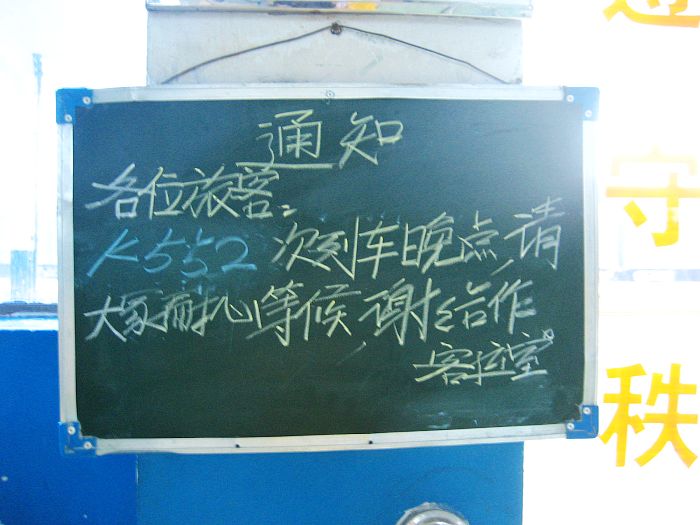 通知
各位旅客:
K552次列车晚点,请
大家耐心等候 谢谢合作
客运室
守
秩